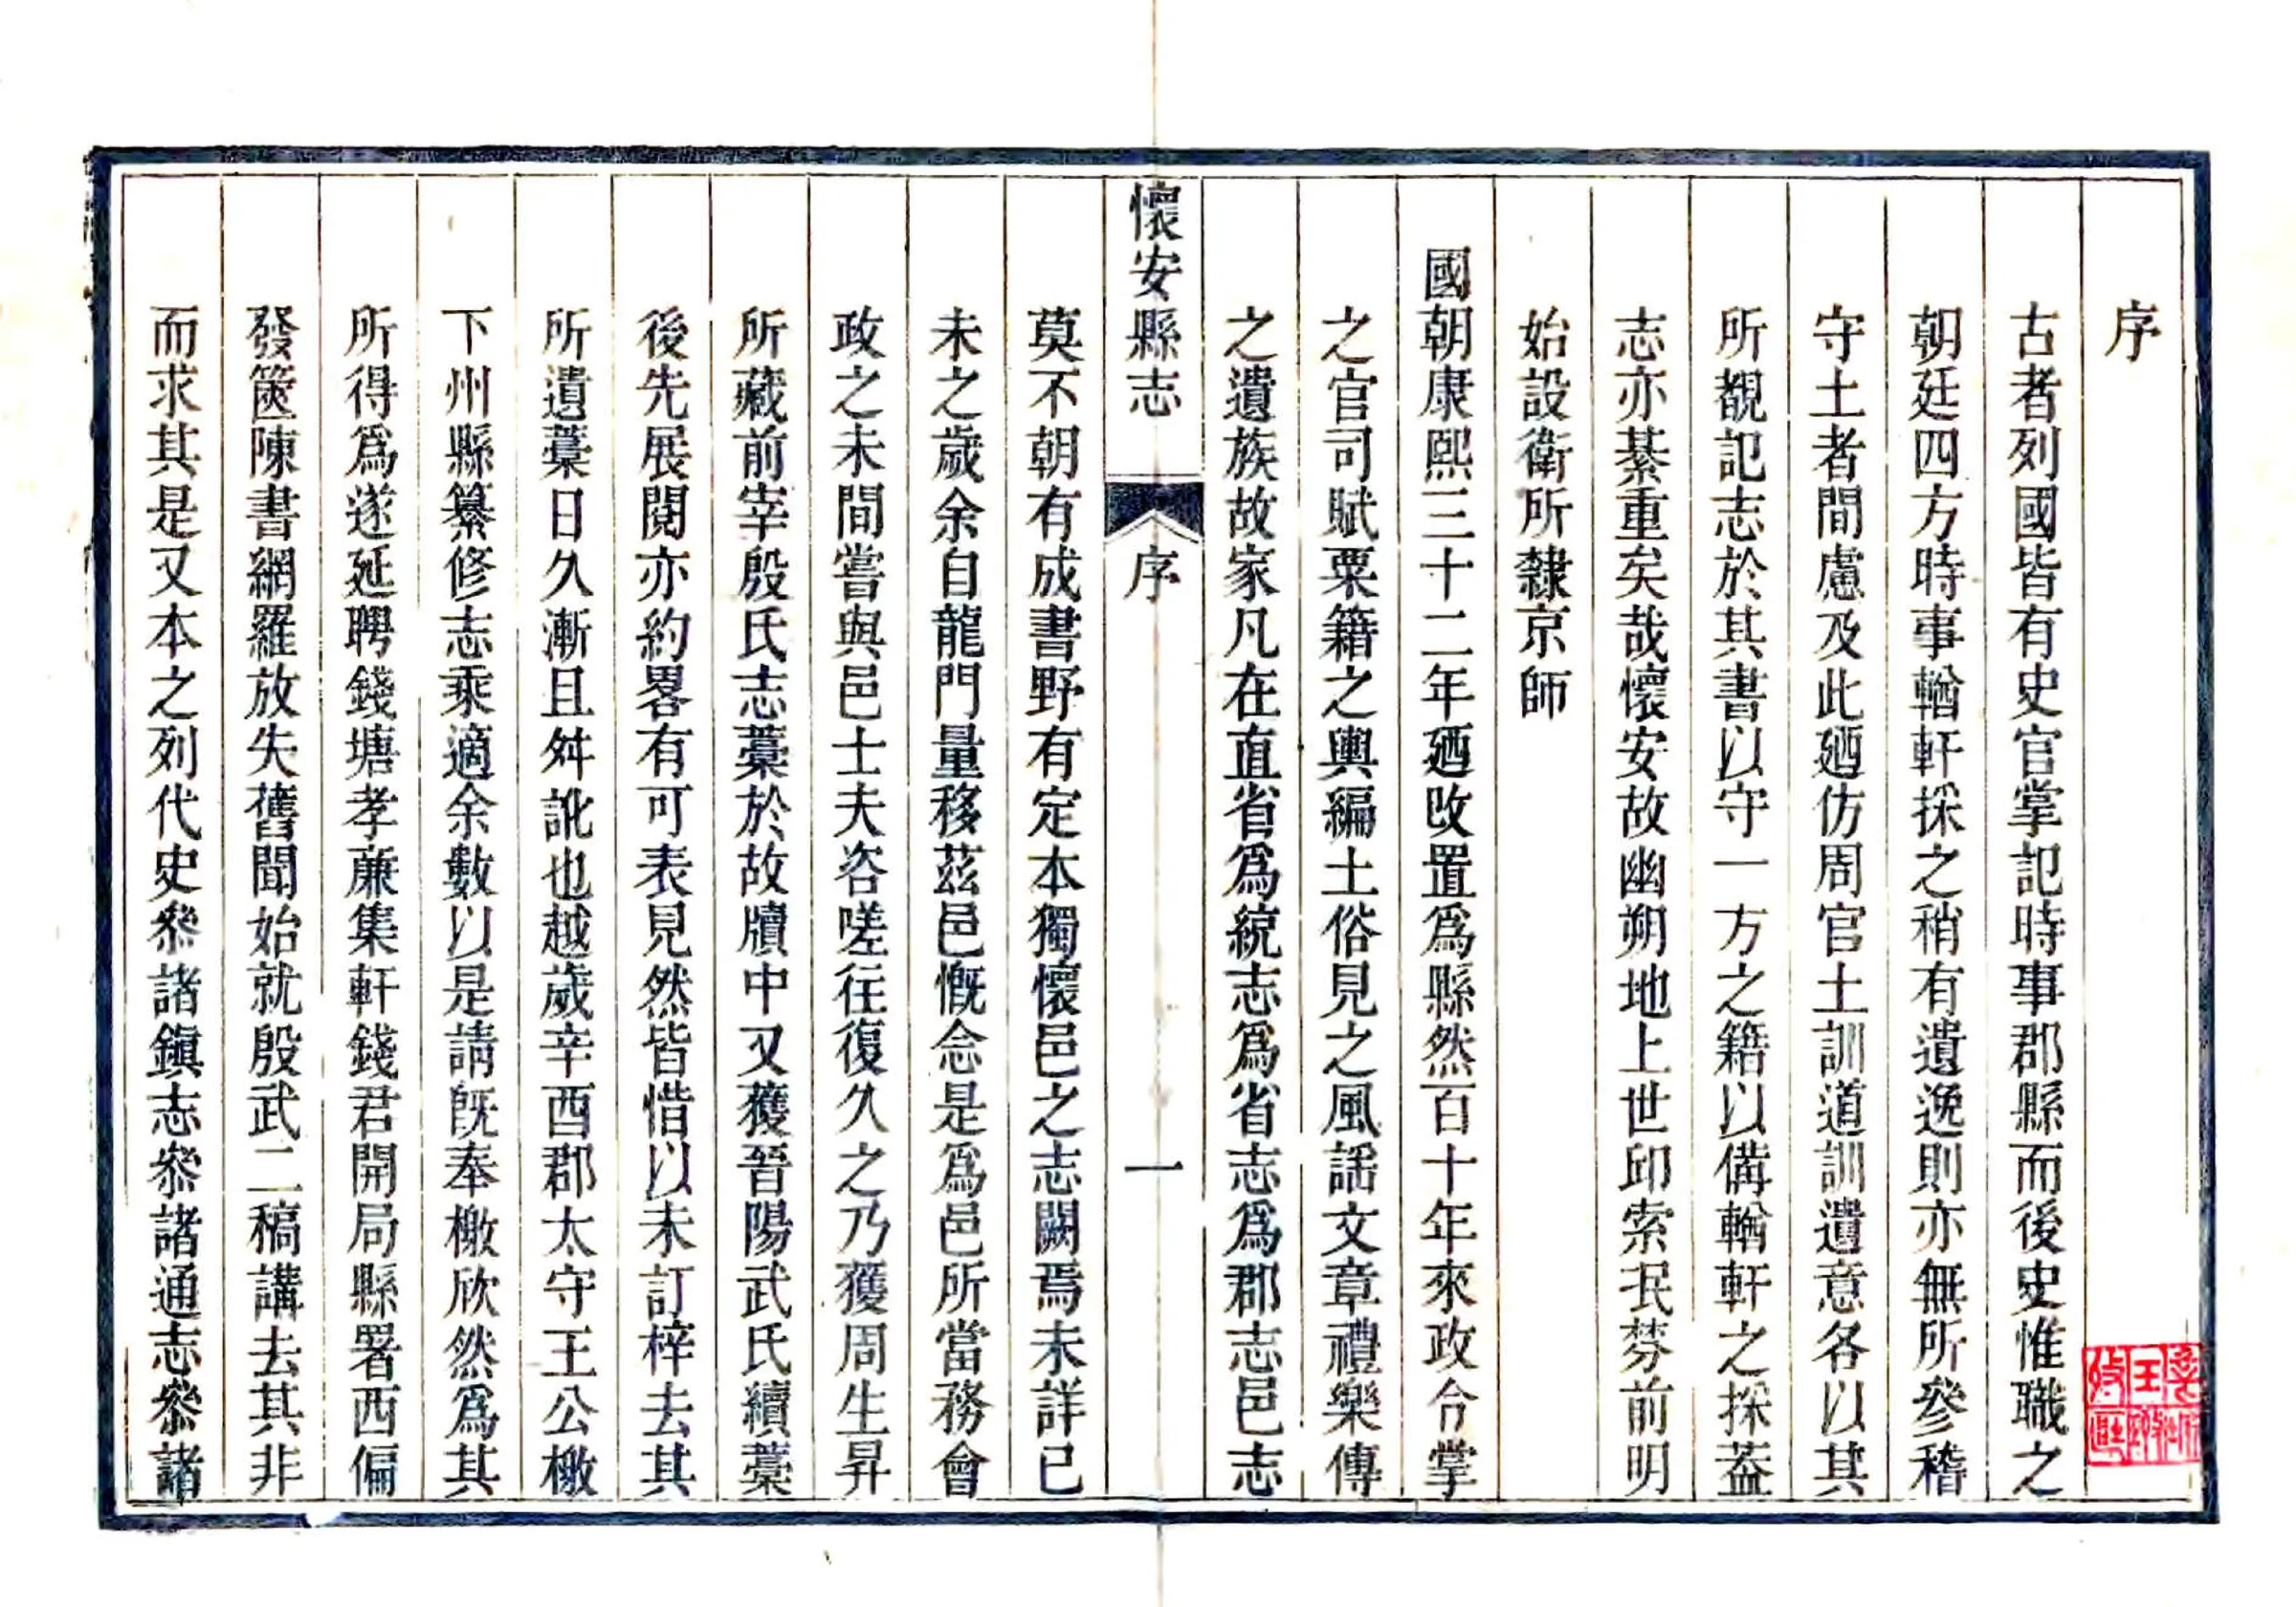 序
古者列國皆有史官掌記時事郡縣而後史惟職之
朝廷四方時事輶軒採之稍有遺逸則亦無所參稽
守土者間慮及此廼仿周官土訓道訓遺意各以其
所覩記志於其書以守一方之籍以備輶軒之採葢
志亦綦重矣哉懷安故幽朔地上世邱索泯芬前明
始設衛所隸京師
國朝康熙三十二年廼改置爲縣然百十年來政令掌
之官司賦粟籍之輿編土俗見之風謡文章禮樂傳
之遺族故家凡在直省爲統志爲省志爲郡志邑志
懷安縣志 序 一
莫不朝有成書野有定本獨懷邑之志闕焉未詳已
未之歲余自龍門量移茲邑慨念是爲邑所當務會
政之未間嘗與邑士夫咨嗟往復久之乃獲周生昇
所藏前宰殷氏志藁於故牘中又獲晉陽武氏續藁
後先展閱亦約畧有可表見然皆惜以未訂梓去其
所遺藁日久漸且舛訛也越歲辛酉郡太守王公檄
下州縣纂修志乘適余數以是請旣奉檄欣然爲其
所得爲遂延聘錢塘孝廉集軒錢君開局縣署西偏
發篋陳書網羅放失舊聞始就殷武二稿講去其非
而求其是又本之列代史叅諸鎭志叅諸通志叅諸